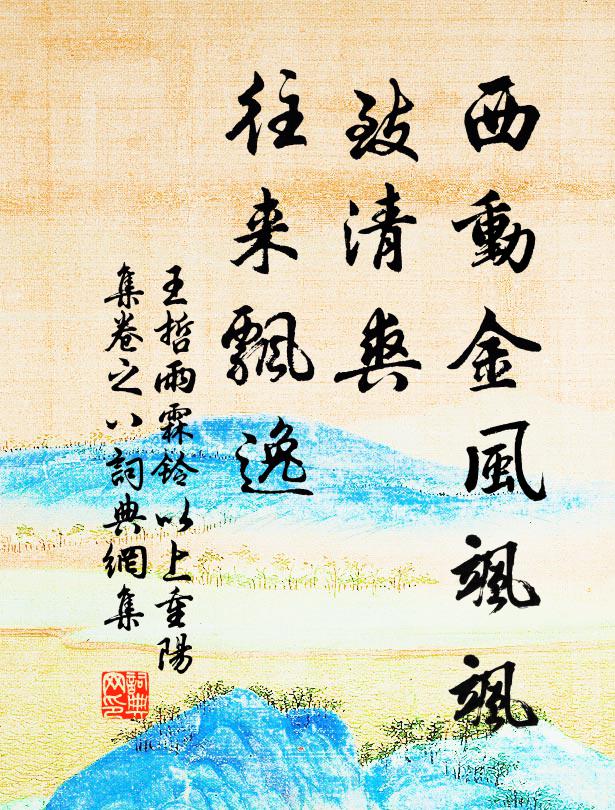 西動金風颯颯
致清爽
往来飄逸
王哲雨霖鈴以上重陽
集卷之八詞典網集
詞典
网印